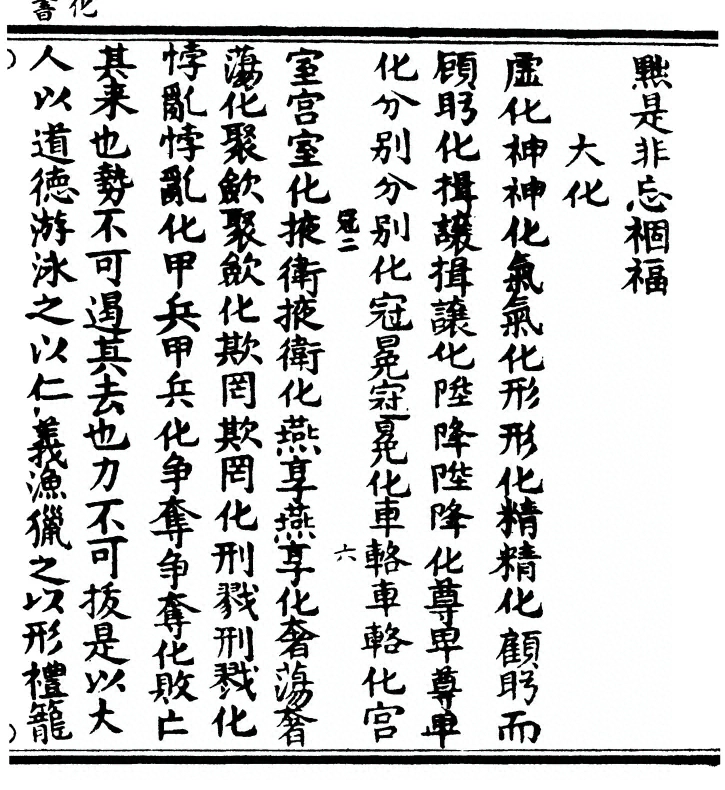 化書
黙是非忘禍福
大化
虛化神神化氣氣化形形化精精化顧眄而
顧眄化揖讓揖讓化陞降陞降化尊卑尊卑
化分別分別化冠冕冠冕化車輅車輅化宫
冠二 六
室宫室化掖衛掖衛化燕享燕享化奢蕩奢
蕩化聚歛聚歛化欺罔欺罔化刑戮刑戮化
悖亂悖亂化甲兵甲兵化争奪争奪化敗亡
其来也勢不可遏其去也力不可拔是以大
人以道德游泳之以仁義漁獵之以形禮籠